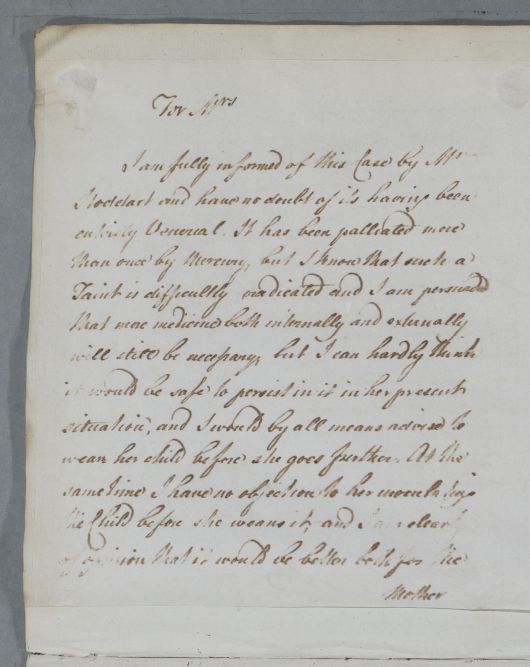 For Mrs
I am fully informed of this Case by Mr
Stoddart and have no doubt of its having been
entirely Venereal. It has been palliated more
than once by Mercury, but I know that such a
Taint is difficultly eradicated and I am persuaded
that more medicine both internally and externally
will still be necessary, but I can hardly think
it would be safe to persist in it in her present
situation, and I would by all means advise to
wean her child before she goes further. At the
same time I have no objection to her
the Child before she weans it, and I am clearly
of opinion that it would be better both for the
Mother